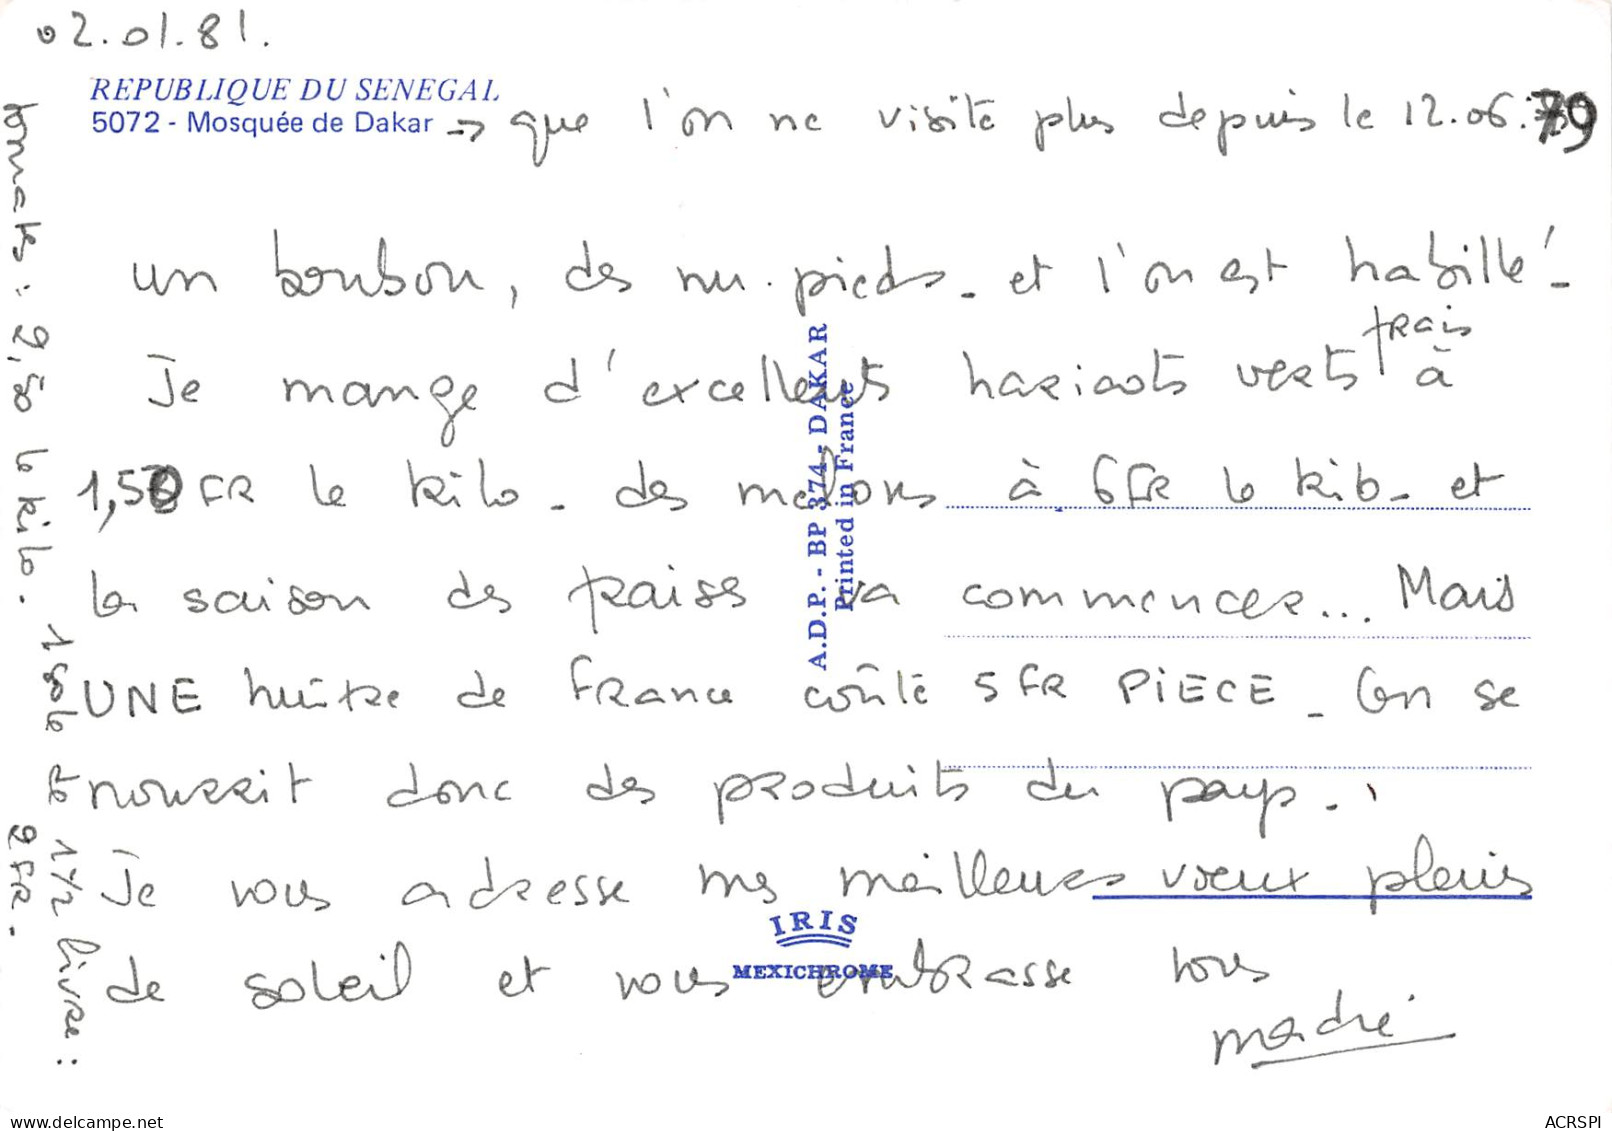 02.01.81.
REPUBLIQUE DU SENEGAL
5072 - Mosquée de Dakar -> que l'on ne visite plus depuis le 12.06.79
un boubou, des nu.pieds - et l'on est habillé -
Je mange d'excellents haricots verts frais à
1,50 FR le kilo - des melons à 6 FR le kilo - et
la saison des fraises va commencer... Mais
UNE huître de France coûte 5 FR PIECE - On se
nourrit donc des produits du pays.
Je vous adresse mes meilleurs vœux pleins
de soleil et vous embrasse tous
tomates : 2,50 le kilo.
1 sole
et 1/2 livre :
2 FR -
A.D.P. - BP 374 - DAKAR
Printed in France
IRIS
MEXICHROME
ACRSPI
delcampe.net